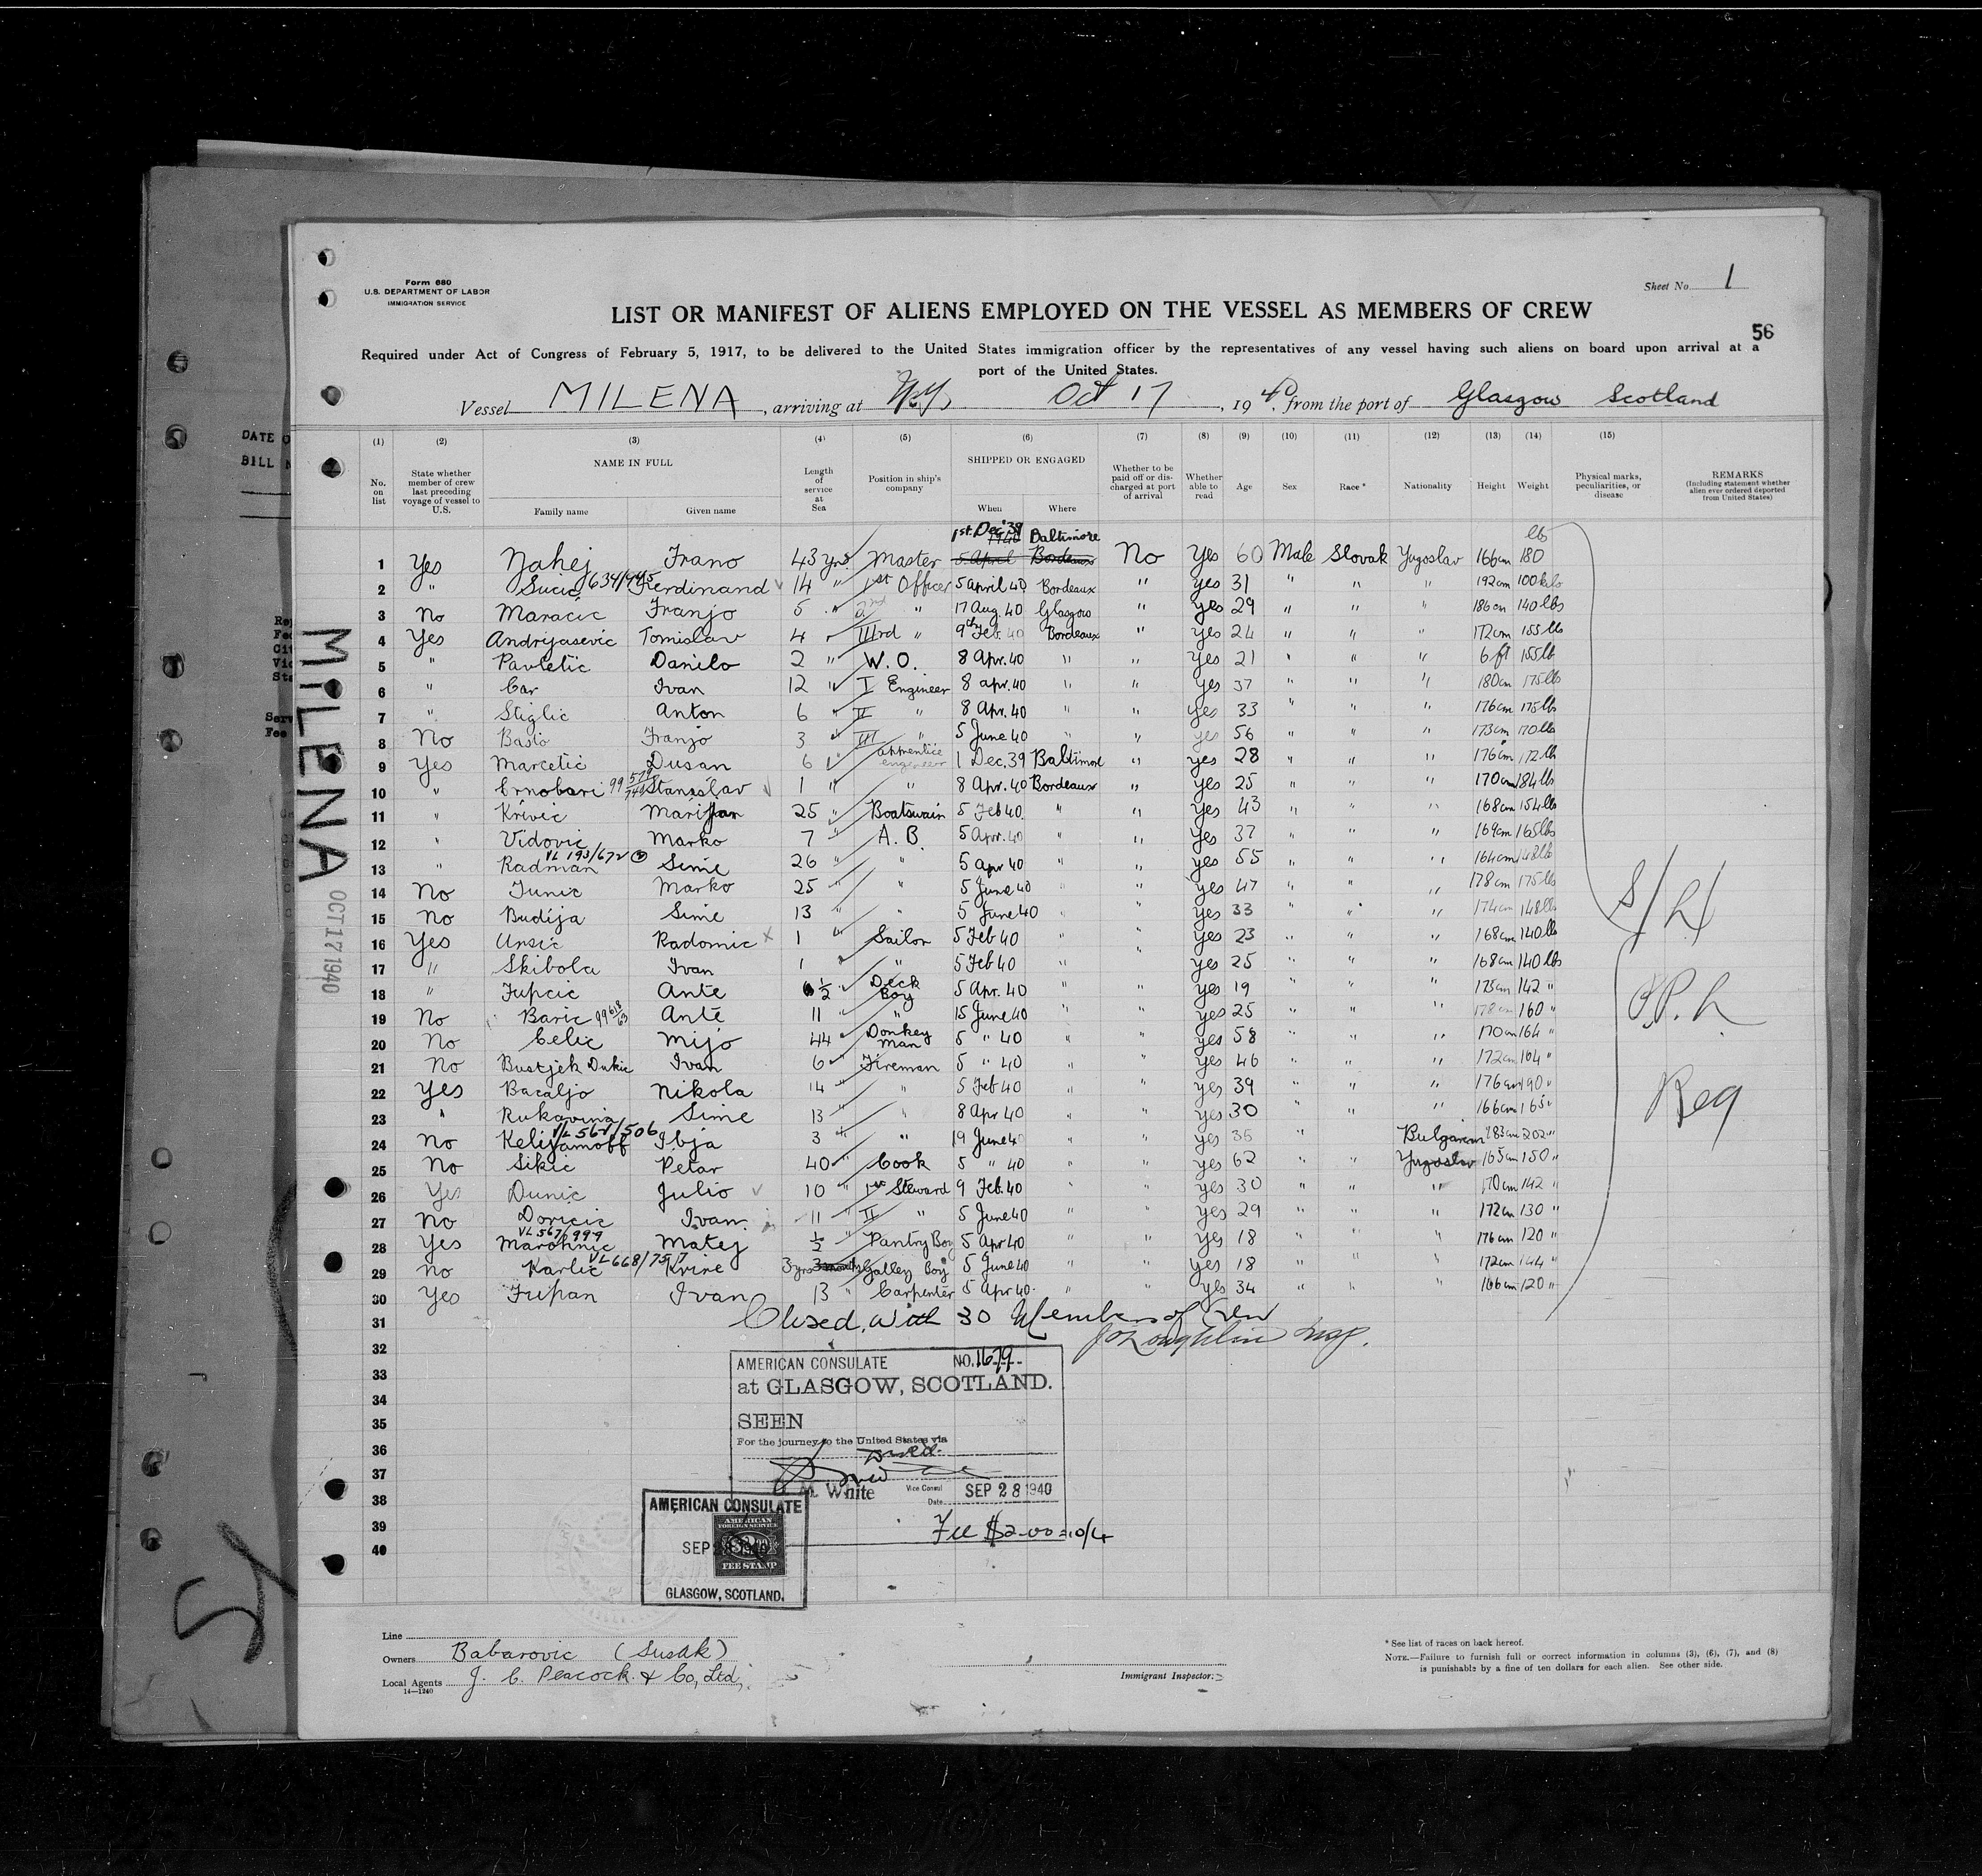 Form 680
U.S. DEPARTMENT OF LABOR
IMMIGRATION SERVICE
Sheet No. 1
LIST OR MANIFEST OF ALIENS EMPLOYED ON THE VESSEL AS MEMBERS OF CREW
56
Required under Act of Congress of February 5, 1917, to be delivered to the United States immigration officer by the representatives of any vessel having such aliens on board upon arrival at a
port of the United States.
Vessel MILENA, arriving at N.Y., Oct 17, 1940, from the port of Glasgow Scotland
(1) (2) (3) (4) (5) (6) (7) (8) (9) (10) (11) (12) (13) (14) (15)
No. on list
State whether member of crew last preceding voyage of vessel to U.S.
NAME IN FULL
Family name Given name
Length of service at Sea
Position in ship's company
SHIPPED OR ENGAGED
When Where
Whether to be paid off or discharged at port of arrival
Whether able to read
Age Sex Race * Nationality Height Weight
Physical marks, peculiarities, or disease
REMARKS
(Including statement whether alien ever ordered deported from United States)
1st. Dec. '39 Baltimore lb
1940
1 Yes Nahej Frano 43 yrs Master 5 April Bordeaux No Yes 60 Male Slovak Yugoslav 166cm 180
2 " Sucic 634/945 Ferdinand 14 " 1st Officer 5 April 40 Bordeaux " yes 31 " " " 192cm 100 kilo
3 No Maracic Franjo 5 " 2nd " 17 Aug. 40 Glasgow " yes 29 " " " 186cm 140 lbs
4 Yes Andrijasevic Tomislav 4 " IIIrd " 9th Feb. 40 Bordeaux " Yes 24 " " " 172cm 155 lb
5 " Pavletic Danilo 2 " W.O. 8 Apr. 40 " " Yes 21 " " " 6 ft 155 lb
6 " Car Ivan 12 " I Engineer 8 apr. 40 " " yes 37 " " " 180cm 175 lbs
7 " Stiglic Anton 6 " II " 8 Apr. 40 " " yes 33 " " " 176cm 175 lbs
8 No Basio Franjo 3 " III " 5 June 40 " " yes 56 " " " 173cm 170 lbs
9 Yes Marcetic Dusan 6 " apprentice engineer 1 Dec. 39 Baltimore " yes 28 " " " 176cm 172 lb
10 " Crnobori 99 579/746 Stanislav 1 " " 8 Apr. 40 Bordeaux " yes 25 " " " 170cm 184 lb
11 " Krivic Marijan 25 " Boatswain 5 Feb 40. " " yes 43 " " " 168cm 154 lb
12 " Vidovic Marko 7 " A.B. 5 Apr. 40 " " Yes 37 " " " 169cm 165 lbs
13 " Radman VL 193/672 Sime 26 " " 5 apr 40 " " yes 55 " " " 164cm 148 lb
14 No Junic Marko 25 " " 5 June 40 " " Yes 47 " " " 178cm 175 lb
15 No Budija Sime 13 " " 5 June 40 " " yes 33 " " " 174cm 148 lb
16 Yes Ursic Radomic 1 " Sailor 5 Feb 40 " " yes 23 " " " 168cm 140 lb
17 " Skibola Ivan 1 " " 5 Feb 40 " " yes 25 " " " 168cm 140 lbs
18 " Jupcic Ante ½ " Deck Boy 5 Apr. 40 " " yes 19 " " " 173cm 142 "
19 No Baric Ante 11 " " 15 June 40 " " yes 25 " " " 178cm 160 "
20 No Celic Mijo 44 " Donkey Man 5 " 40 " " yes 58 " " " 170cm 164 "
21 No Bustjek Dukic Ivan 6 " Fireman 5 " 40 " " yes 46 " " " 172cm 164 "
22 Yes Bacaljo Nikola 14 " " 5 Feb 40 " " yes 39 " " " 176cm 190 "
23 " Rukavina Sime 13 " " 8 Apr 40 " " yes 30 " " " 166cm 165 "
24 No Kelijamoff VL 568/506 Ibja 3 " " 19 June 40 " " yes 35 " " Bulgarian 183cm 202 "
25 No Sikic Petar 40 " Cook 5 " 40 " " yes 62 " " Yugoslav 165cm 150 "
26 Yes Dunic Julio 10 " 1st Steward 9 Feb. 40 " " yes 30 " " " 170cm 142 "
27 No Doricic Ivan 11 " II " 5 June 40 " " yes 29 " " " 172cm 130 "
28 Yes Marohnic VL 567/999 Matej ½ " Pantry Boy 5 Apr 40 " " yes 18 " " " 176cm 120 "
29 No Karlic VL 668/757 Kvire 3 yrs 3 months Galley Boy 5 June 40 " " yes 18 " " " 172cm 144 "
30 Yes Jupan Ivan 13 " Carpenter 5 Apr 40. " " yes 34 " " " 166cm 120 "
31 Closed, with 30 Members of Crew
32 J O'Loughlin Insp.
33
34
35
36
37
38
39
40
S/L
O.P.L.
Reg
AMERICAN CONSULATE NO. 1679
at GLASGOW, SCOTLAND.
SEEN
For the journey to the United States via
direct.
J. M. White Vice Consul
Date SEP 28 1940
Fee $2.00 = 10/4
AMERICAN CONSULATE
AMERICAN
FOREIGN SERVICE
SEP 28 1940
$2
FEE STAMP
GLASGOW, SCOTLAND.
Line
Owners Babarovic (Susak)
Local Agents J. C. Peacock & Co, Ltd.
14—1240
Immigrant Inspector.
* See list of races on back hereof.
NOTE.—Failure to furnish full or correct information in columns (3), (6), (7), and (8)
is punishable by a fine of ten dollars for each alien. See other side.
MILENA
OCT 17 1940
DATE O
BILL N